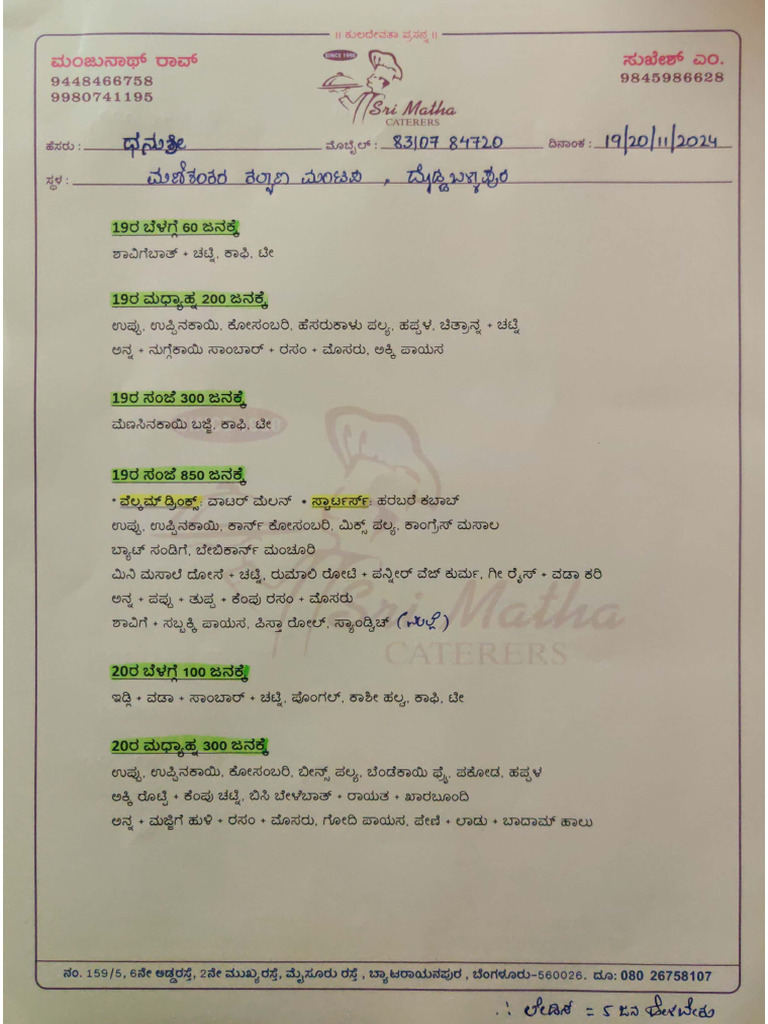 ॥ ಕುಲದೇವತಾ ಪ್ರಸನ್ನ ॥
ಮಂಜುನಾಥ್ ರಾವ್
9448466758
9980741195
SINCE 1960
Sri Matha
CATERERS
ಸುಖೇಶ್ ಎಂ.
9845986628
ಹೆಸರು : ಧನುಶ್ರೀ ಮೊಬೈಲ್ : 83107 84720 ದಿನಾಂಕ : 19/20/11/2024
ಸ್ಥಳ : ಮಣಿಶಂಕರ ಕಲ್ಯಾಣ ಮಂಟಪ , ದೊಡ್ಡಬಳ್ಳಾಪುರ
19ರ ಬೆಳಗ್ಗೆ 60 ಜನಕ್ಕೆ
ಶಾವಿಗೆಬಾತ್ + ಚಟ್ನಿ, ಕಾಫಿ, ಟೀ
19ರ ಮಧ್ಯಾಹ್ನ 200 ಜನಕ್ಕೆ
ಉಪ್ಪು, ಉಪ್ಪಿನಕಾಯಿ, ಕೋಸಂಬರಿ, ಹೆಸರುಕಾಳು ಪಲ್ಯ, ಹಪ್ಪಳ, ಚಿತ್ರಾನ್ನ + ಚಟ್ನಿ
ಅನ್ನ + ನುಗ್ಗೆಕಾಯಿ ಸಾಂಬಾರ್ + ರಸಂ + ಮೊಸರು, ಅಕ್ಕಿ ಪಾಯಸ
19ರ ಸಂಜೆ 300 ಜನಕ್ಕೆ
ಮೆಣಸಿನಕಾಯಿ ಬಜ್ಜಿ, ಕಾಫಿ, ಟೀ
19ರ ಸಂಜೆ 850 ಜನಕ್ಕೆ
* ವೆಲ್ಕಮ್ ಡ್ರಿಂಕ್ಸ್: ವಾಟರ್ ಮೆಲನ್ * ಸ್ಟಾರ್ಟರ್ಸ್: ಹರಬರೆ ಕಬಾಬ್
ಉಪ್ಪು, ಉಪ್ಪಿನಕಾಯಿ, ಕಾರ್ನ್ ಕೋಸಂಬರಿ, ಮಿಕ್ಸ್ ಪಲ್ಯ, ಕಾಂಗ್ರೆಸ್ ಮಸಾಲ
ಬ್ಯಾಟ್ ಸಂಡಿಗೆ, ಬೇಬಿಕಾರ್ನ್ ಮಂಚೂರಿ
ಮಿನಿ ಮಸಾಲೆ ದೋಸೆ + ಚಟ್ನಿ, ರುಮಾಲಿ ರೋಟಿ + ಪನ್ನೀರ್ ವೆಜ್ ಕುರ್ಮ, ಗೀ ರೈಸ್ + ವಡಾ ಕರಿ
ಅನ್ನ + ಪಪ್ಪು + ತುಪ್ಪ + ಕೆಂಪು ರಸಂ + ಮೊಸರು
ಶಾವಿಗೆ + ಸಬ್ಬಕ್ಕಿ ಪಾಯಸ, ಪಿಸ್ತಾ ರೋಲ್, ಸ್ಯಾಂಡ್ವಿಚ್
20ರ ಬೆಳಗ್ಗೆ 100 ಜನಕ್ಕೆ
ಇಡ್ಲಿ + ವಡಾ + ಸಾಂಬಾರ್ + ಚಟ್ನಿ, ಪೊಂಗಲ್, ಕಾಶೀ ಹಲ್ವ, ಕಾಫಿ, ಟೀ
20ರ ಮಧ್ಯಾಹ್ನ 300 ಜನಕ್ಕೆ
ಉಪ್ಪು, ಉಪ್ಪಿನಕಾಯಿ, ಕೋಸಂಬರಿ, ಬೀನ್ಸ್ ಪಲ್ಯ, ಬೆಂಡೆಕಾಯಿ ಫ್ರೈ, ಪಕೋಡ, ಹಪ್ಪಳ
ಅಕ್ಕಿ ರೊಟ್ಟಿ + ಕೆಂಪು ಚಟ್ನಿ, ಬಿಸಿ ಬೇಳೆಬಾತ್ + ರಾಯತ + ಖಾರಬೂಂದಿ
ಅನ್ನ + ಮಜ್ಜಿಗೆ ಹುಳಿ + ರಸಂ + ಮೊಸರು, ಗೋದಿ ಪಾಯಸ, ಪೇಣಿ + ಲಾಡು + ಬಾದಾಮ್ ಹಾಲು
Sri Matha
CATERERS
ನಂ. 159/5, 6ನೇ ಅಡ್ಡರಸ್ತೆ, 2ನೇ ಮುಖ್ಯರಸ್ತೆ, ಮೈಸೂರು ರಸ್ತೆ , ಬ್ಯಾಟರಾಯನಪುರ , ಬೆಂಗಳೂರು-560026. ದೂ: 080 26758107
∴ ಲೇಡಿಸ್ = 5 ಜನ ಹೇಳಬೇಕು